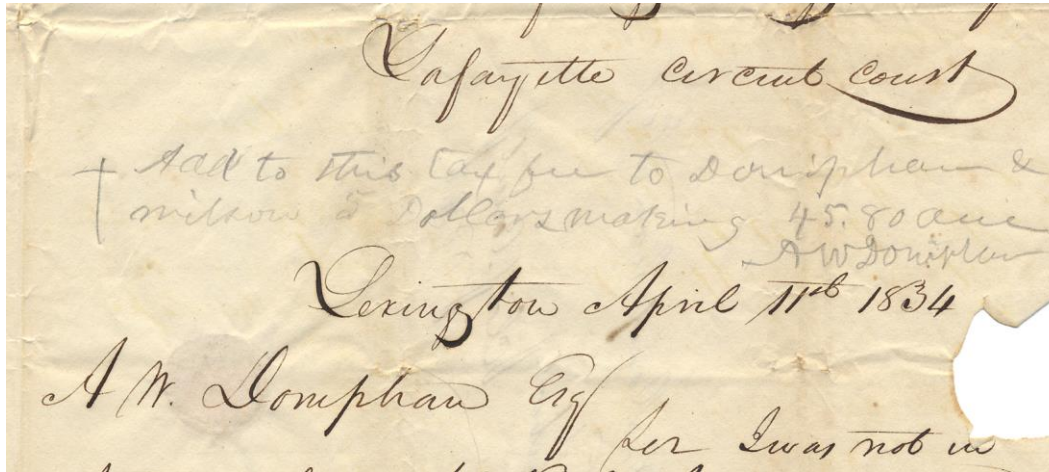 Lafayette Circuit Court
Add to this tax fee to Doniphan &
Wilson 5 Dollars making 45.80
AW Doniphan
Lexington April 11th 1834
A W. Doniphan Esq
Sir I was not in